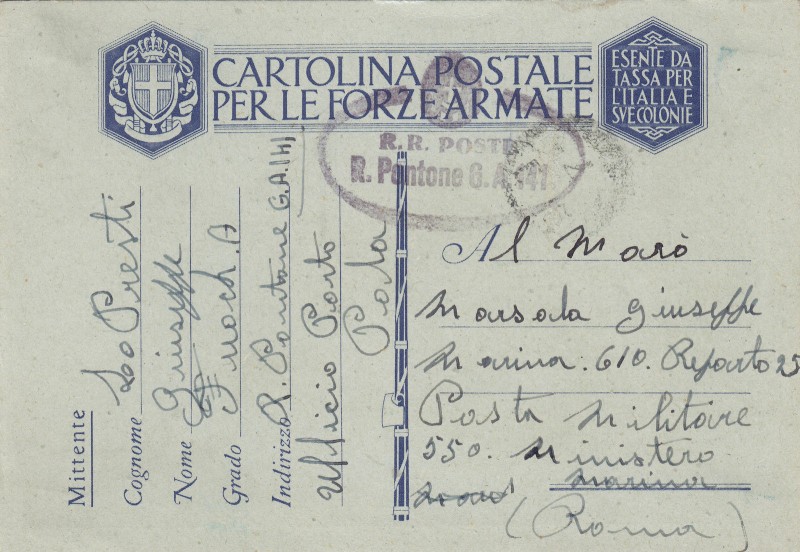 CARTOLINA POSTALE
PER LE FORZE ARMATE
ESENTE DA
TASSA PER
L'ITALIA E
SVE COLONIE
R. R. POSTE
R. Pontone G.A. 141.
Mittente
Cognome Lo Presti
Nome Giuseppe
Grado Fuoch. A
Indirizzo R. Pontone G.A. 141
Ufficio Porto
Pola
Al Marò
Marsala Giuseppe
Marina. 610. Reparto 25
Posta Militare
550. Ministero
Marina
(Roma)